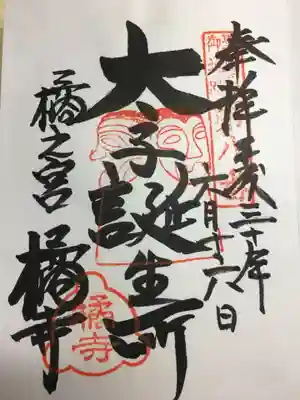 奉拝 平成三十年
六月十六日
太子誕生所
橘之宮 橘寺
橘寺